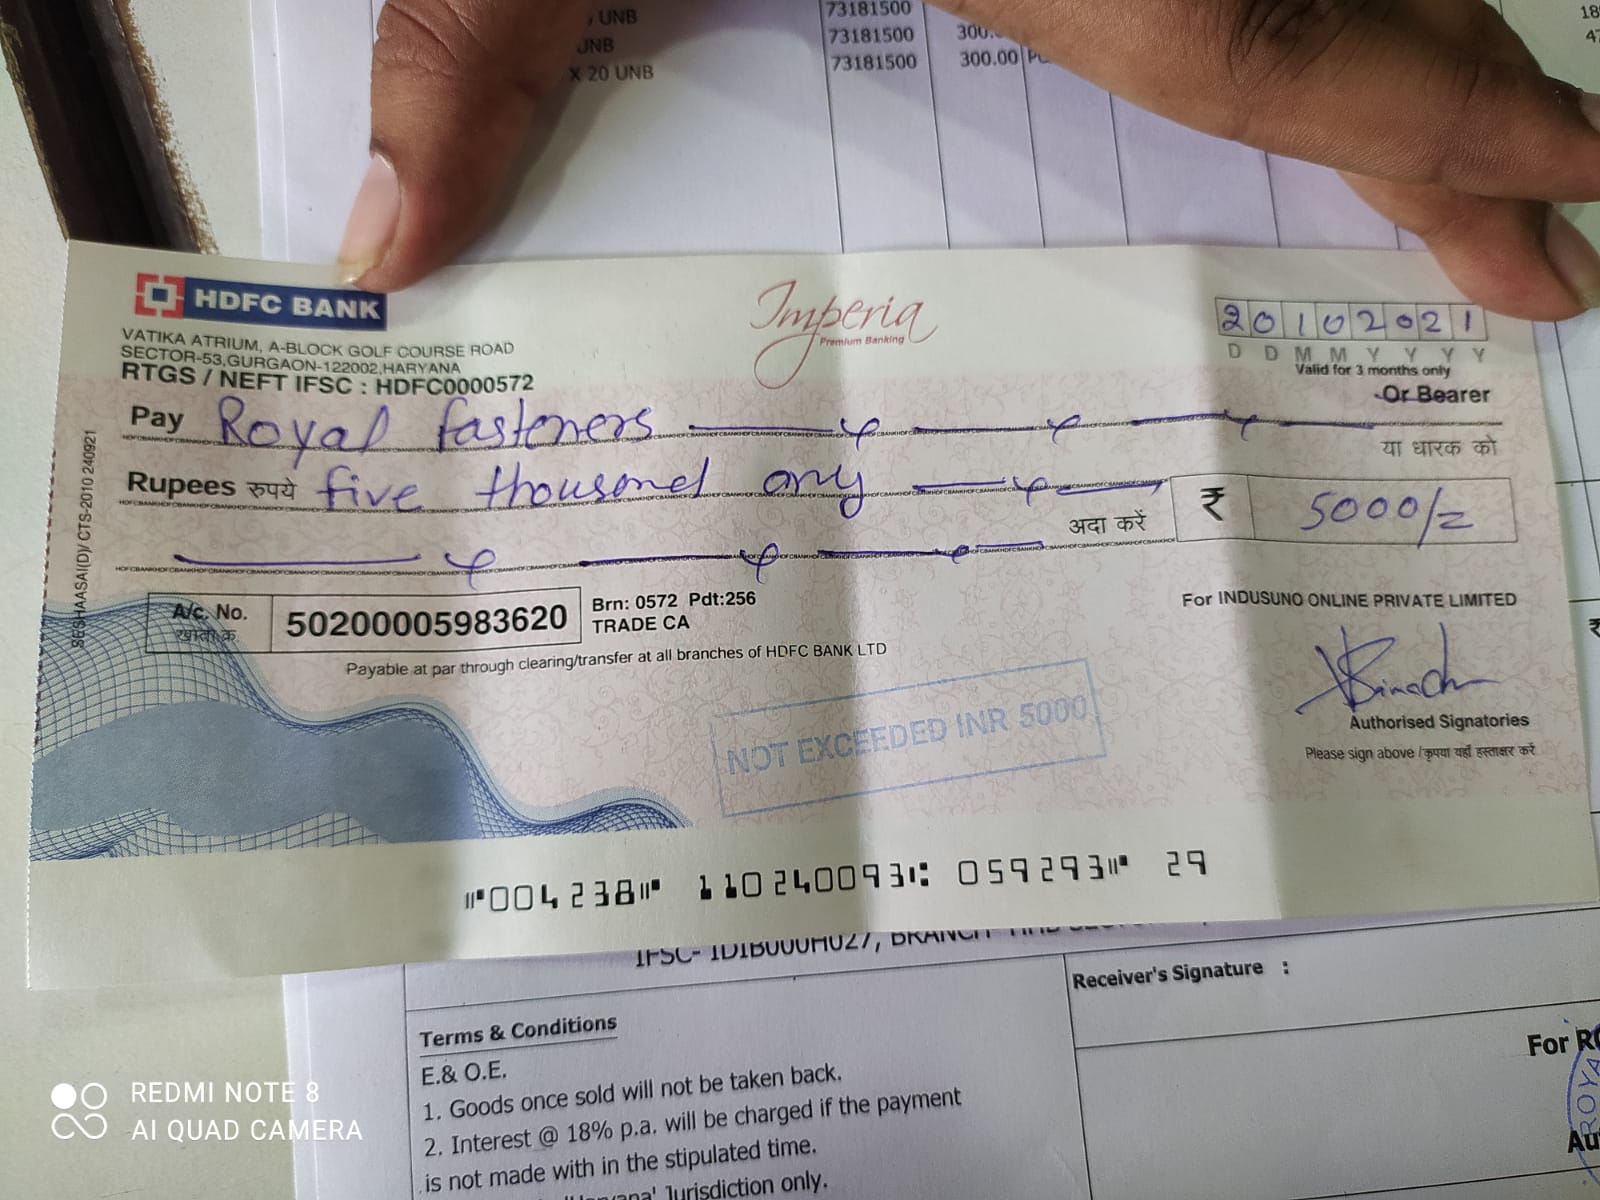 UNB
73181500
UNB
73181500
X 20 UNB
73181500
300.00
HDFC BANK
VATIKA ATRIUM, A-BLOCK GOLF COURSE ROAD
SECTOR-53,GURGAON-122002,HARYANA
RTGS / NEFT IFSC : HDFC0000572
Imperia
Premium Banking
20102021
D D M M Y Y Y Y
Valid for 3 months only
Pay Royal fasteners
Or Bearer
या धारक को
Rupees रुपये five thousand only
अदा करें
₹ 5000/=
SESHAASAI(D)/ CTS-2010 240921
A/c. No.
खाता क्र.
50200005983620
Brn: 0572 Pdt:256
TRADE CA
Payable at par through clearing/transfer at all branches of HDFC BANK LTD
For INDUSUNO ONLINE PRIVATE LIMITED
NOT EXCEEDED INR 5000
Authorised Signatories
Please sign above / कृपया यहाँ हस्ताक्षर करें
⑈004238⑈ 110240093⑆ 059293⑈ 29
IFSC- IDIB000H027, BRANCH
Receiver's Signature :
Terms & Conditions
E.& O.E.
1. Goods once sold will not be taken back.
2. Interest @ 18% p.a. will be charged if the payment
is not made with in the stipulated time.
Jurisdiction only.
For
REDMI NOTE 8
AI QUAD CAMERA